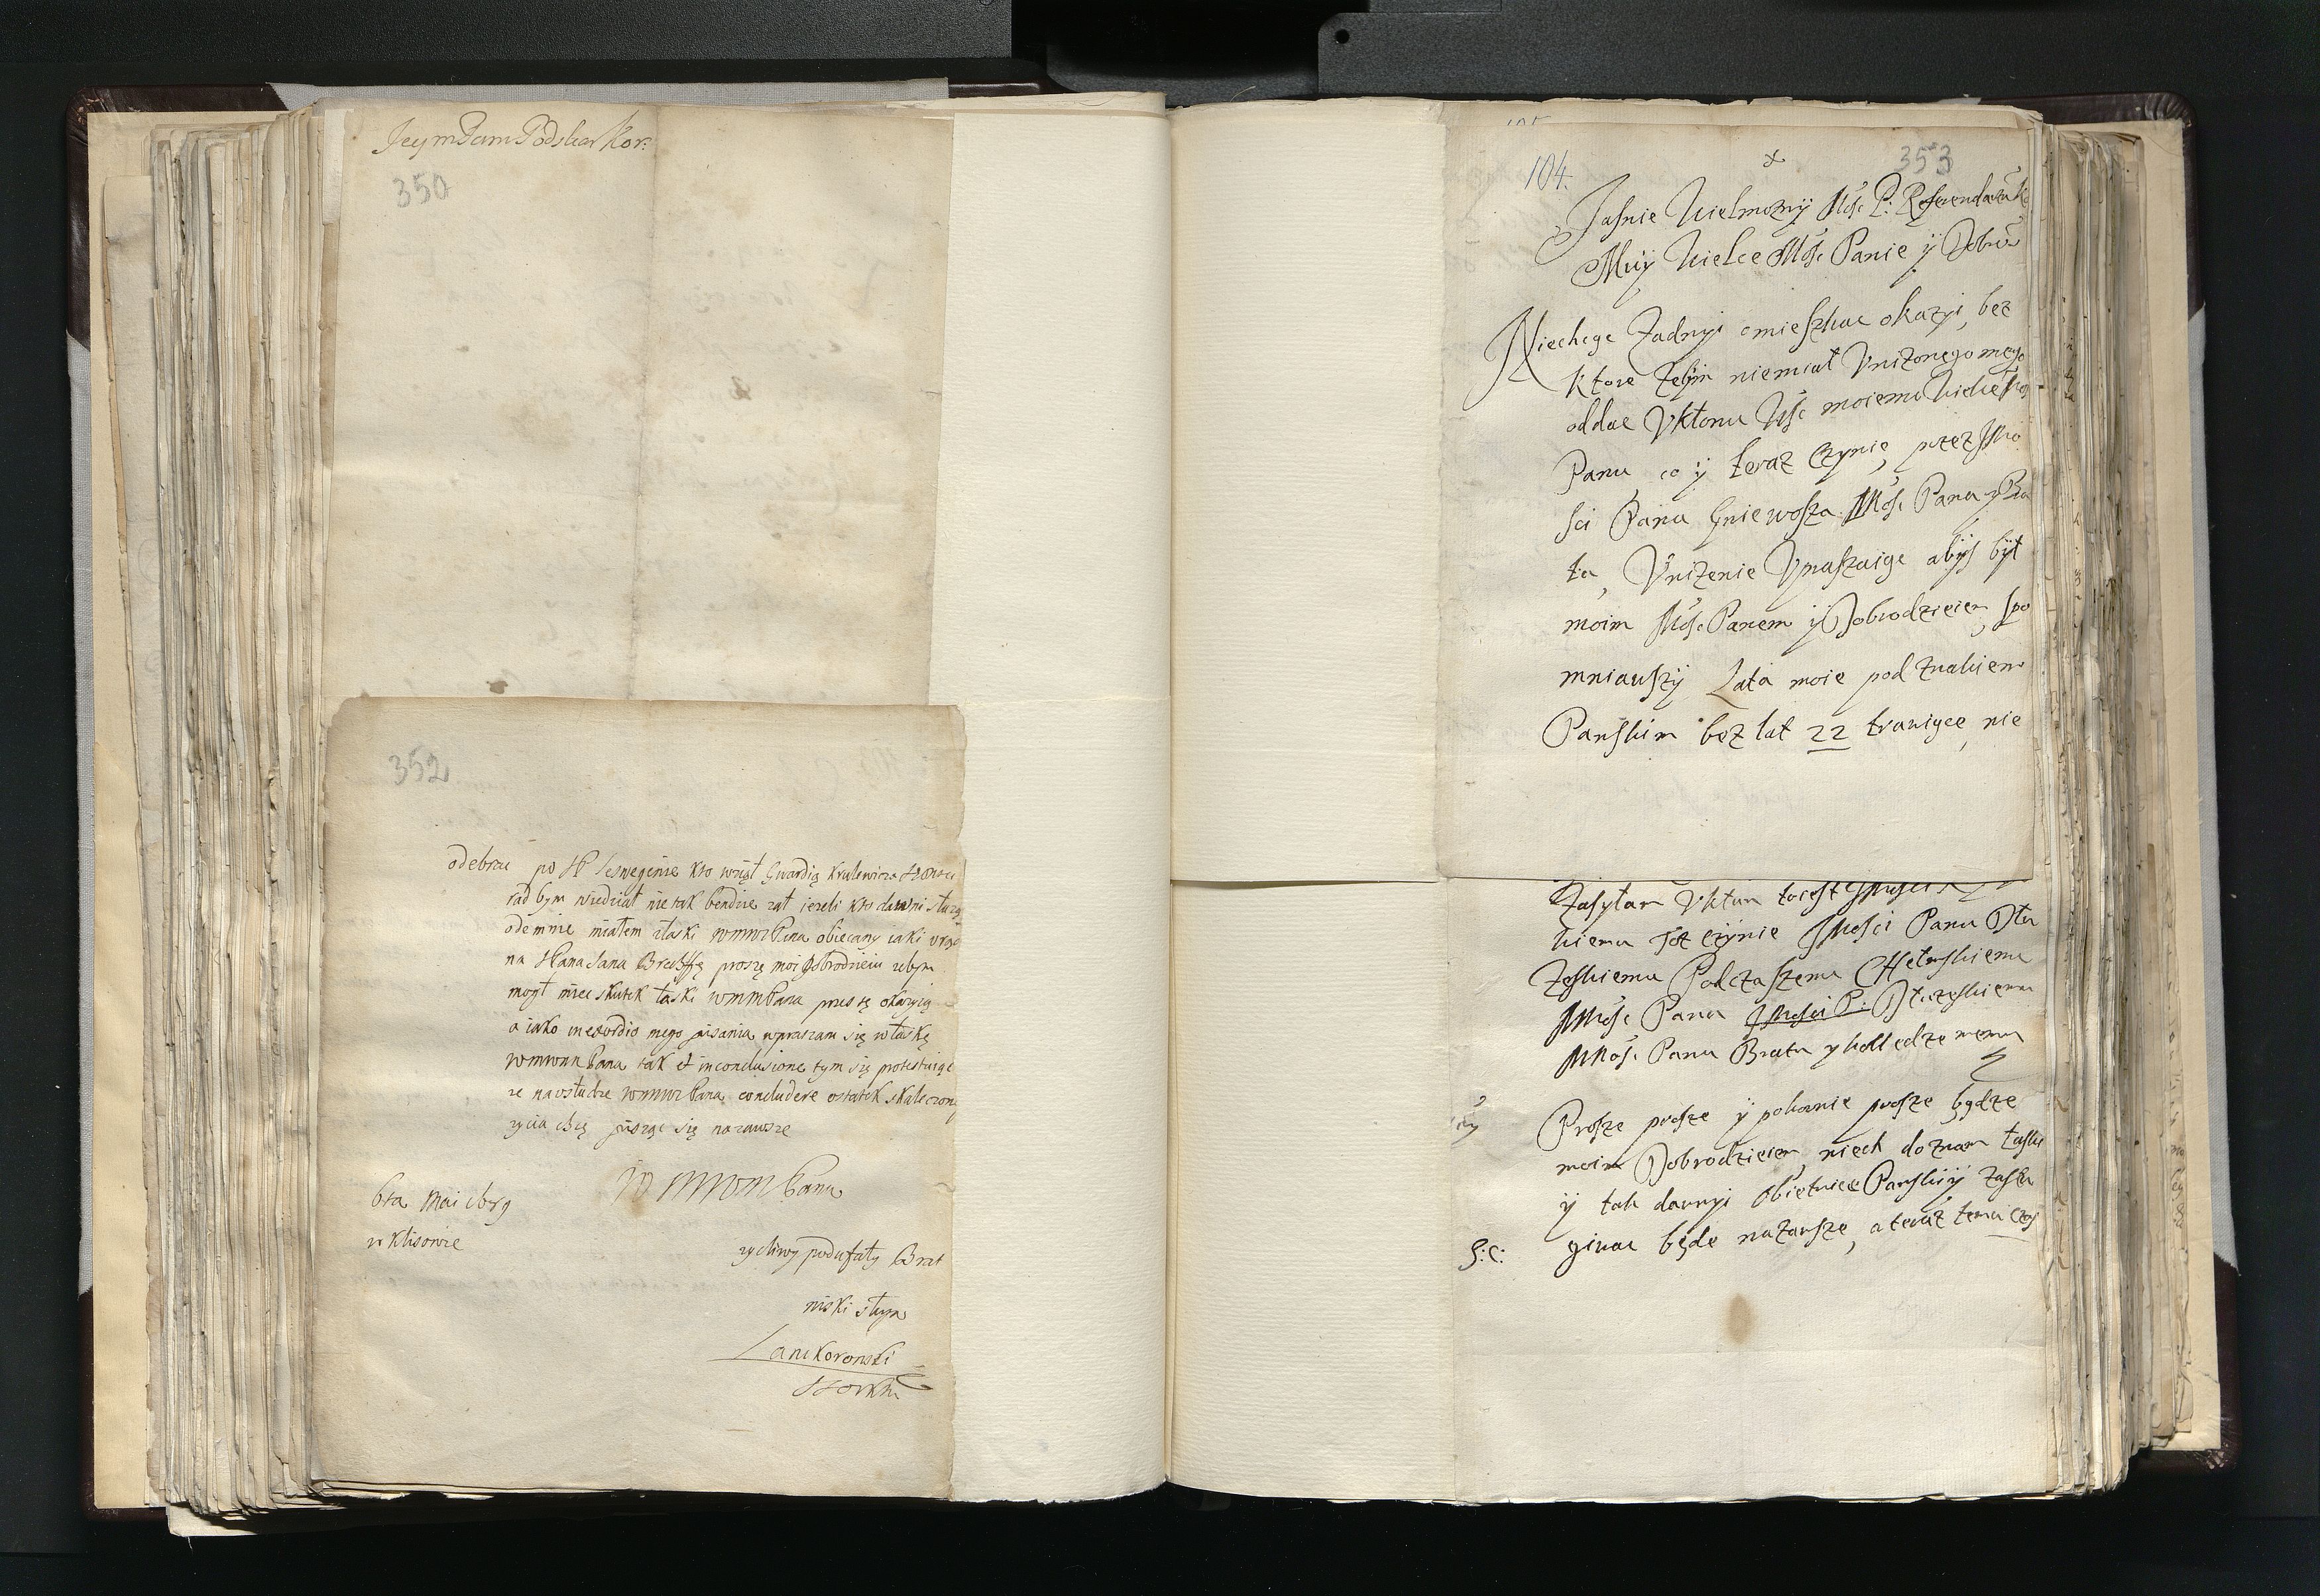 Jeym Pam Podskar Kor:
350
352
odebrać po JP kto wziął Gwardią krulewica
rad bym wiedział nie tak bendzie zat jezeli kto dawni
odemnie miałem złaski wmwPana obiecany iaki
na Jana proszę moi Dobrodzieiu zebym
mogł miec skutek łaski wmmPana przes tę okazyią
a iako inexordio mego pisania upraszam się właskę
Pana tak et inconclusione tym się protestuiąc
ze nausłudze wmmPana concludere ostatek skaleczone
zycia chcę pisząc się nazawsze
WMWMPana
6ta Mai 1679
w Klisowie
zycliwy podufały Brat
niski sługa
Lanckoronski
104.
353
Jasnie Wielmozny Mośc P: Referendarzu Ko
Muy Wielce Mośc Panie y Dobro
Niechcąc zadnyi omieszkac okazyi, bez
ktore zebym niemiał Vnizonego mego
oddac Vkłonu Wśc moiemu
Panu co y teraz czynie, przez Jmo
sci Pana Gniewosza Mośc Pana y Bra
ta, Vnizenie Vpraszaiąc abys był
moim Mośc Panem y Dobrodzieiem, spo
mniawszy Lata moie pod znakiem
Panskim bez lat 22 trawiące, nie
Zasyłam Vkłon
kiemu toz czynie JMosci Panu Dłu
zeskiemu Podczaszemu Chełmskiemu
Mośc Pana JMosci P: Dłuzeskiemu
Mośc Panu Bratu y kolledze memu
Prosze prosze y pokornie prosze bądze
moim Dobrodzieiem, niech doznam łaski
y tak dawnyi Obietnice Panskiy zasłu
giwac będe nazawsze, a teraz temu
S: C: